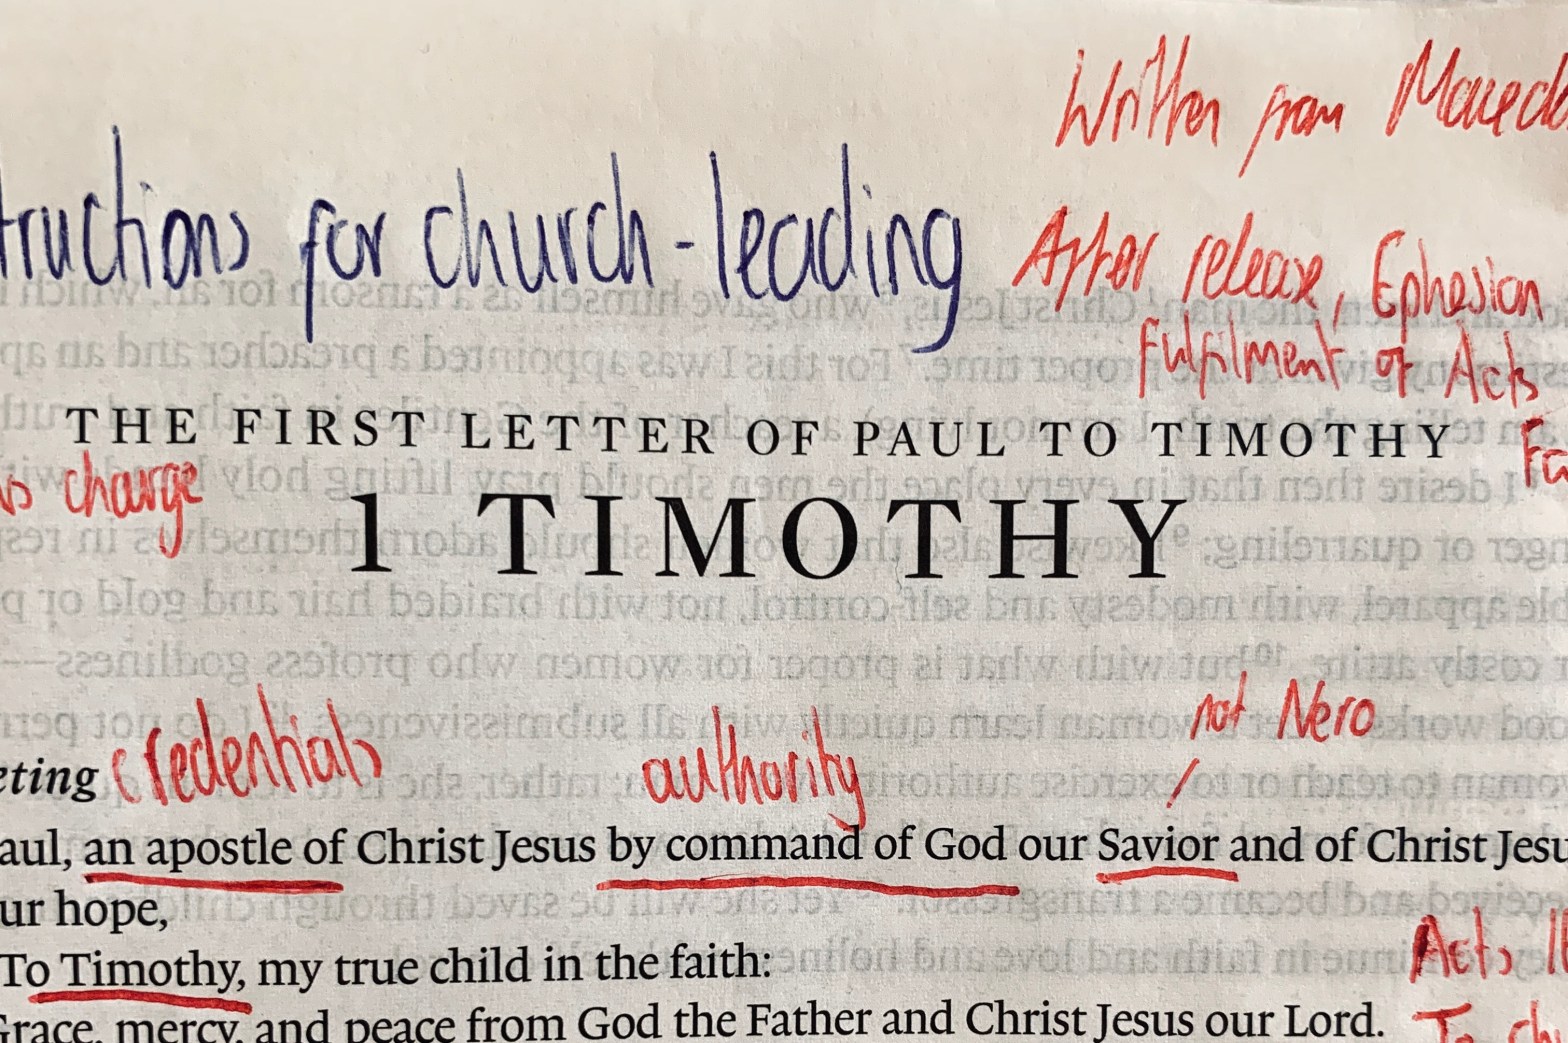 Written from Macedo
tructions for church-leading
After release, Ephesian
fulfilment of Acts
THE FIRST LETTER OF PAUL TO TIMOTHY
charge
1 TIMOTHY
not Nero
eting credentials authority
aul, an apostle of Christ Jesus by command of God our Savior and of Christ Jesu
ur hope,
To Timothy, my true child in the faith:
Acts
Grace, mercy, and peace from God the Father and Christ Jesus our Lord.
To